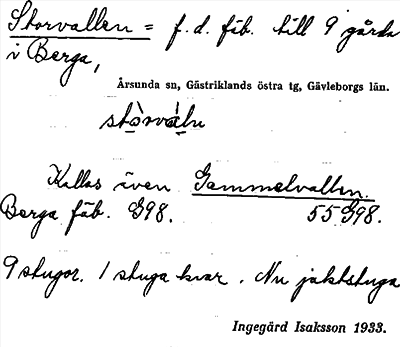 Storvallen = f.d. fäb. till 9 gårda
i Berga,
Årsunda sn, Gästriklands östra tg, Gävleborgs län.
stòrváln
Kallas även Gammelvallen.
Berga fäb. G98. 55 G98.
9 stugor. 1 stuga kvar. Nu jaktstuga
Ingegärd Isaksson 1933.